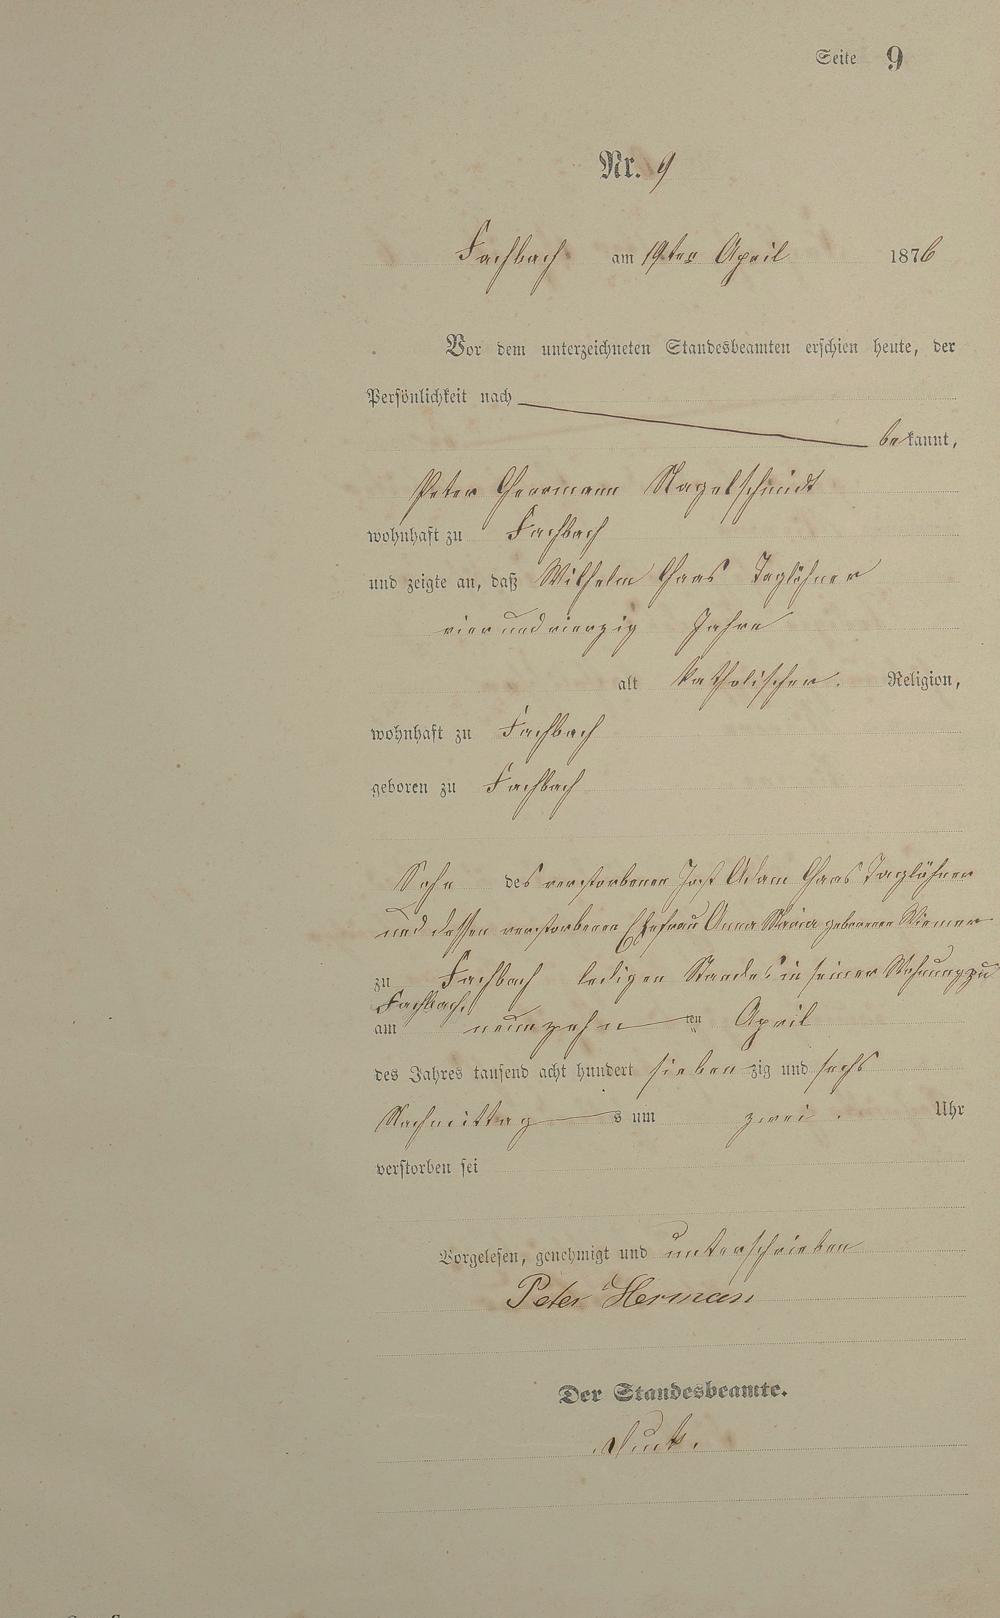 Seite 9
Nr. 9
Fachbach am 19ten April 1876
Vor dem unterzeichneten Standesbeamten erschien heute, der
Persönlichkeit nach
bekannt,
Peter Herrmann Nagelschmidt
wohnhaft zu Fachbach
und zeigte an, daß Wilhelm Haas Taglöhner
vier und vierzig Jahre
alt katholischer Religion,
wohnhaft zu Fachbach
geboren zu Fachbach
Sohn des verstorbenen Jost Adam Haas Taglöhner
und dessen verstorbenen Ehefrau Anna Maria geborenen Wiemer
zu Fachbach ledigen Standes in seiner Wohnung zu
Fachbach,
am neunzehn ten April
des Jahres tausend acht hundert sieben zig und sechs
Nachmittag s um zwei Uhr
verstorben sei
Vorgelesen, genehmigt und unterschrieben
Peter Herman
Der Standesbeamte.